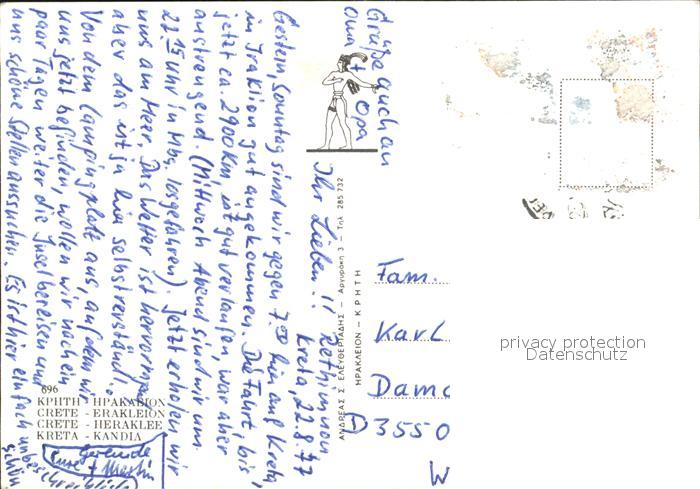 Rethimnon
Kreta, 22.8.77
Ihr Lieben!!
Gestern, Sonntag sind wir gegen 7.00 hier auf Kreta
in Iraklion gut angekommen. Die Fahrt, bis
jetzt ca. 2900 km, ist gut verlaufen, war aber
anstrengend. (Mittwoch Abend sind wir um
22.15 Uhr in Mbg. losgefahren). Jetzt erholen wir
uns am Meer. Das Wetter ist hervorragend
aber das ist ja hier selbstverständl.
Von dem Campingplatz aus, auf dem wir
uns jetzt befinden, wollen wir noch ein
paar Tagen weiter die Insel bereisen und
uns schöne Stellen aussuchen. Es ist hier einfach unbeschreiblich
schön
Eure Gerlinde
+ Martin
Grüße auch an
Oma + Opa
Fam.
Karl
Dam
D 3550
W
ΑΝΔΡΕΑΣ Σ. ΕΛΕΥΘΕΡΙΑΔΗΣ — Αργυράκη 3 — Τηλ. 285 732
ΗΡΑΚΛΕΙΟΝ - ΚΡΗΤΗ
696
ΚΡΗΤΗ - ΗΡΑΚΛΕΙΟΝ
CRETE - ERAKLEION
CRETE - HERAKLEE
KRETA - KANDIA
privacy protection
Datenschutz